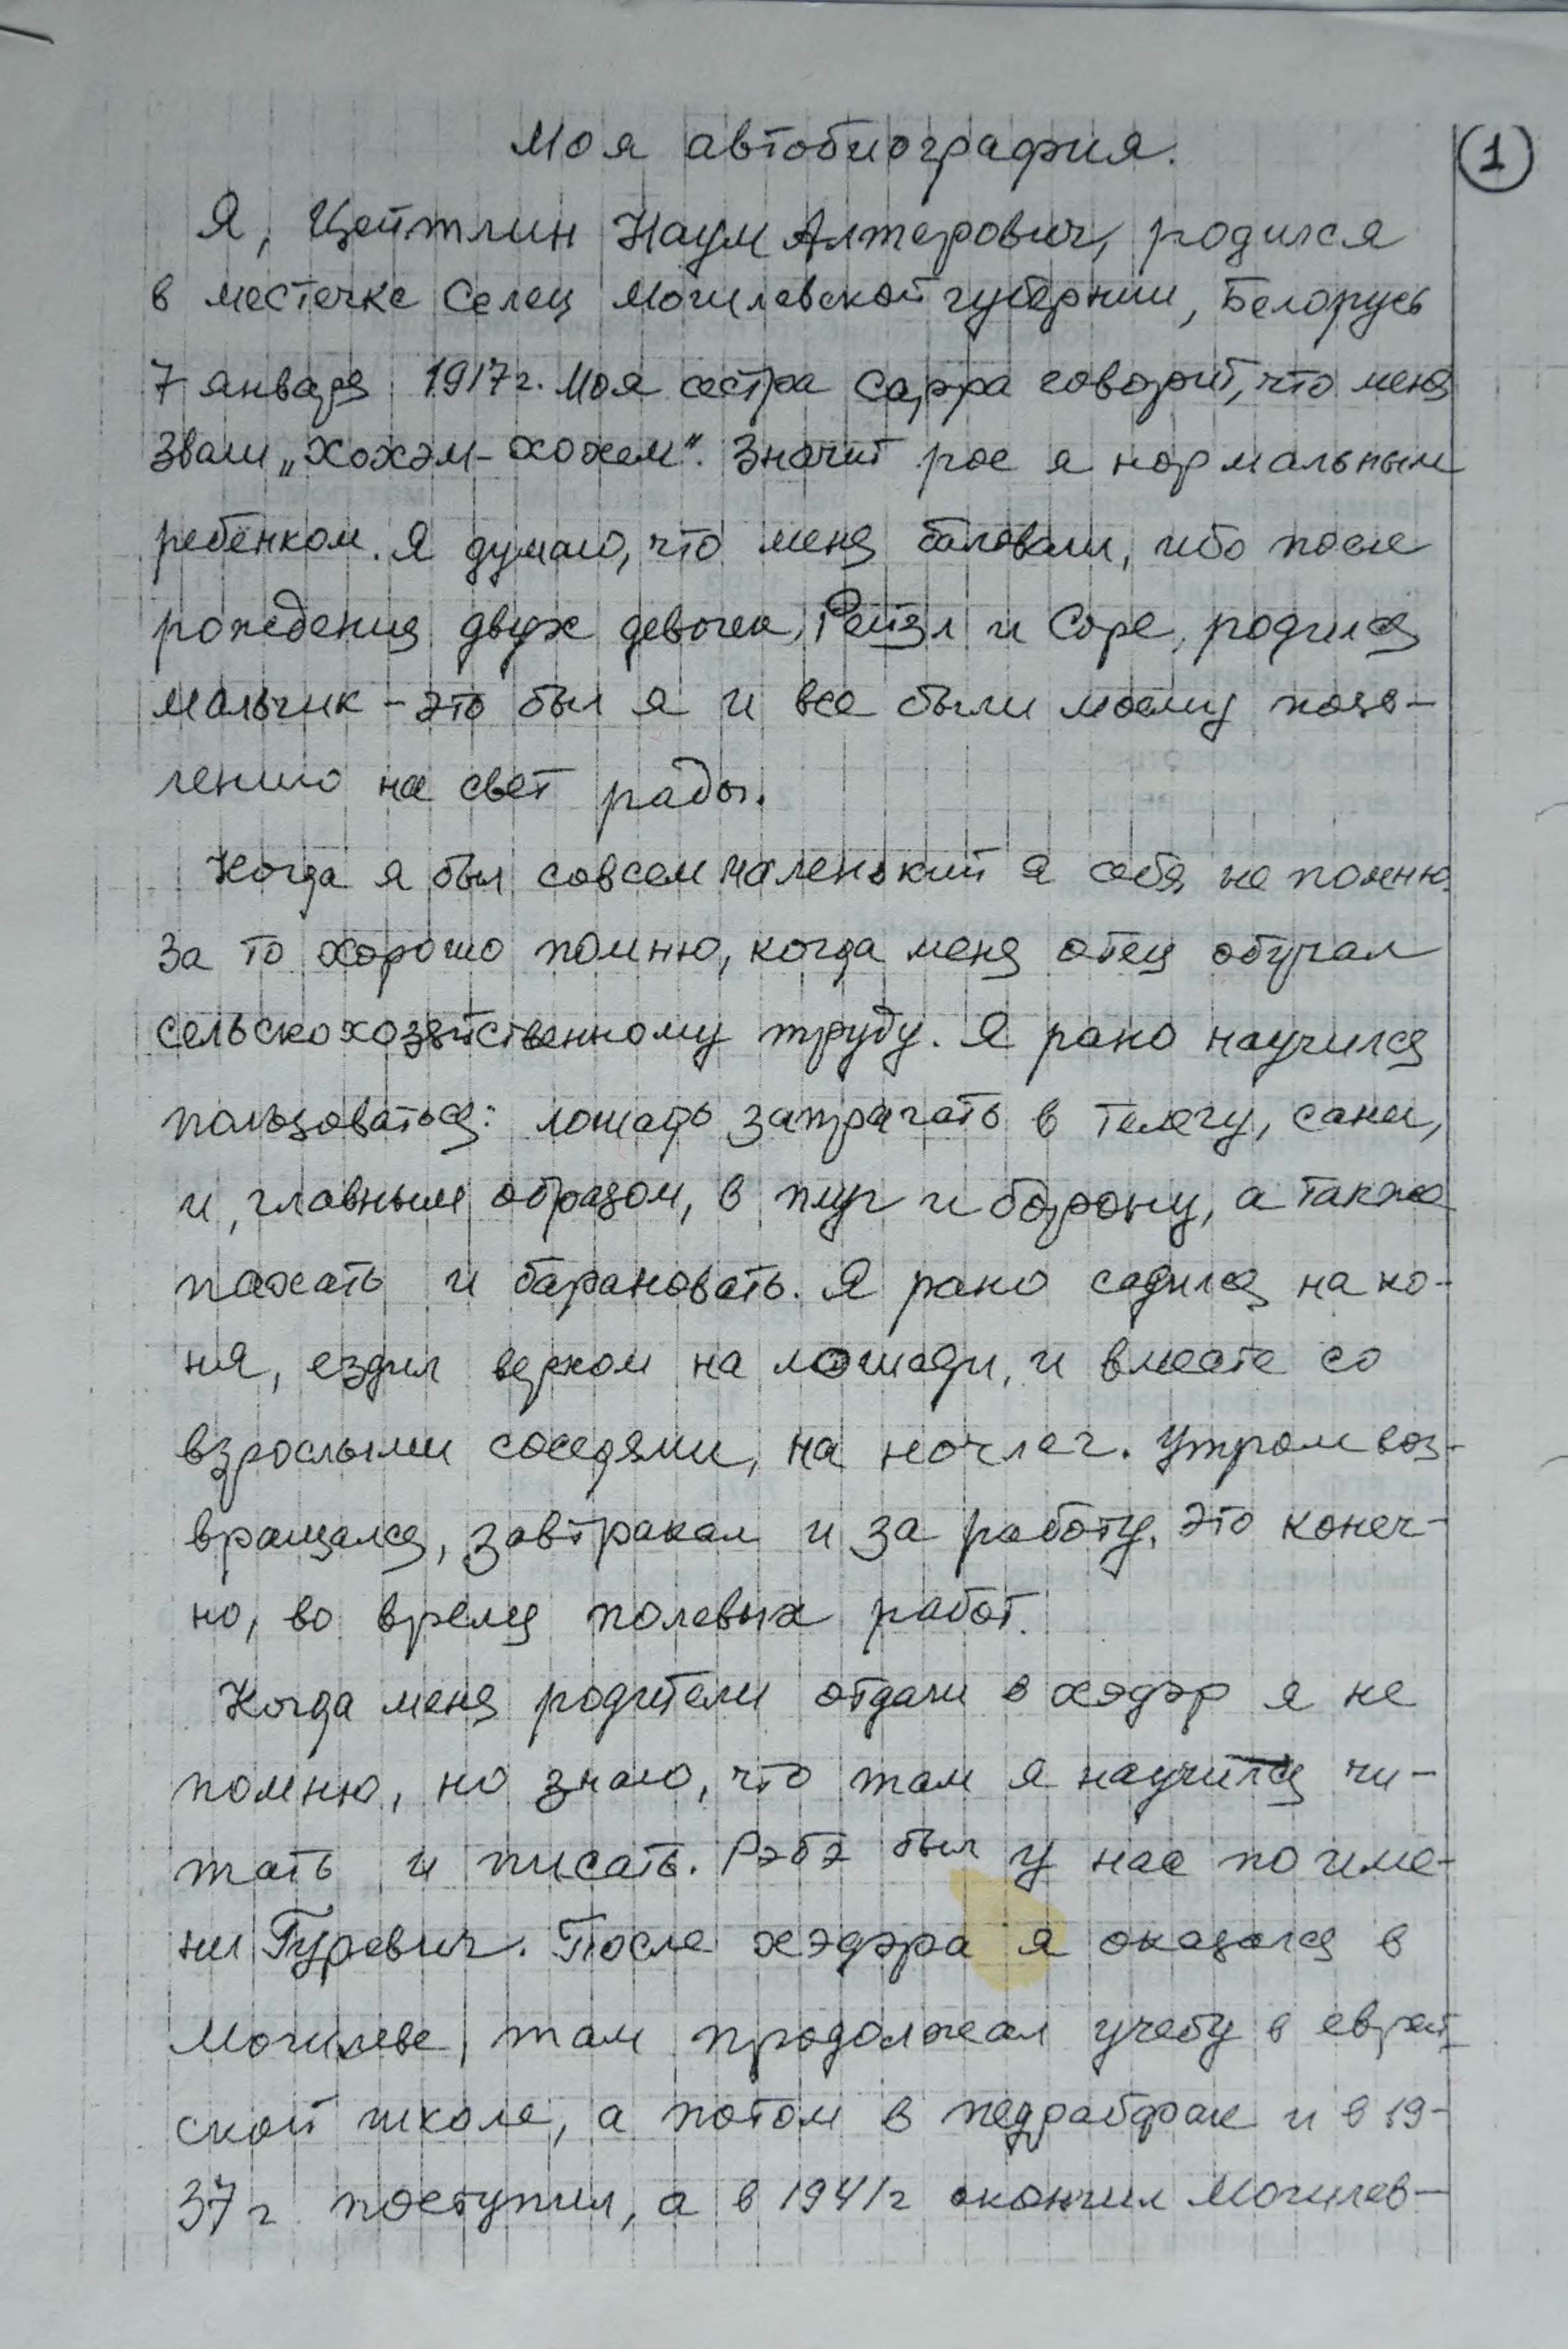 Моя автобиография.
1
Я, Цейтлин Наум Алтерович, родился
в местечке Селец Могилевской губернии, Белорусь
7 января 1917 г. Моя сестра Сарра говорит, что меня
звали „хохэм-хохем". Значит рос я нормальным
ребёнком. Я думаю, что меня баловали, ибо после
рождения двух девочек, Рейзл и Соре, родился
мальчик – это был я и все были моему появ-
лению на свет рады.
Когда я был совсем маленький я себя не помню.
За то хорошо помню, когда меня отец обучал
сельскохозяйственному труду. Я рано научился
пользоваться: лошадь запрягать в телегу, сани,
и, главным образом, в плуг и борону, а также
пахать и барановать. Я рано садился на ко-
ня, ездил верхом на лошади, и вместе со
взрослыми соседями, на ночлег. Утром воз-
вращался, завтракал и за работу. Это конеч-
но, во время полевых работ.
Когда меня родители отдали в хэдэр я не
помню, но знаю, что там я научился чи-
тать и писать. Рэбэ был у нас по име-
ни Гуревич. После хэдэра я оказался в
Могилеве, там продолжал учебу в еврей-
ской школе, а потом в педрабфак и в 19-
37 г поступил, а в 1941 г окончил Могилев-